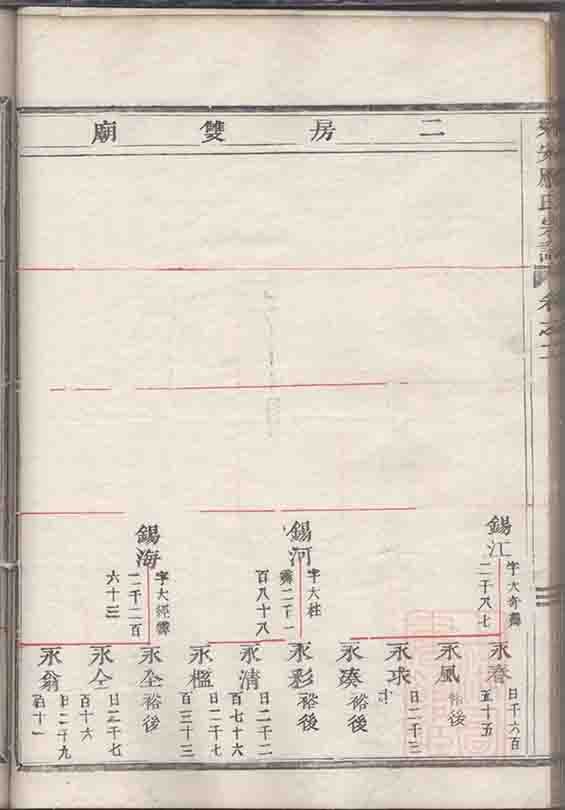 二房雙廟
錫江
字大奇霽
二千八七
錫河
字大柱
霽二千一
百八十八
錫海
字大經霽
二千二百
六十三
永春
日千六百
五十五
永風
裕後
永球
日二千三
永湊
裕後
永彩
裕後
永清
日二千二
百七十六
永檻
日二千七
百三十三
永全
裕後
永仝
日二千七
百十六
永翁
日二千九
百十一
氏宗譜
卷之二